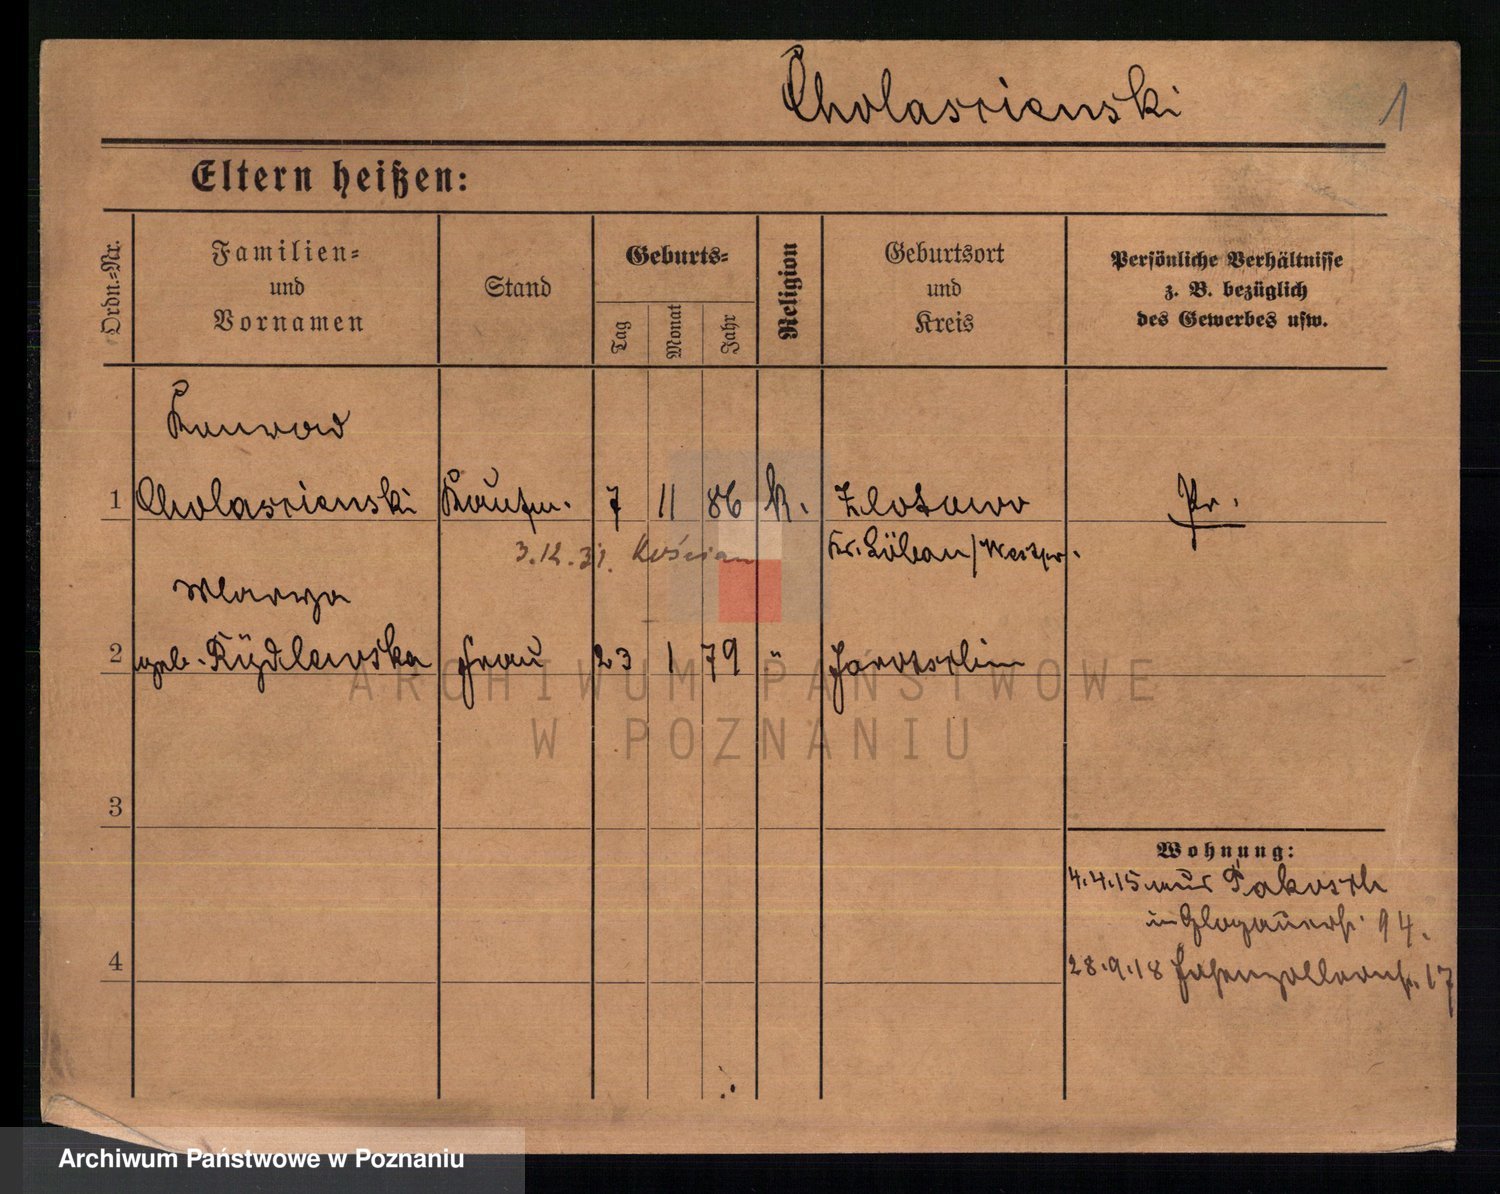 Cholascienski
1
Eltern heißen:
Ordn.-Nr.
Familien-
und
Vornamen
Stand
Geburts-
Tag
Monat
Jahr
Religion
Geburtsort
und
Kreis
Persönliche Verhältnisse
z. B. bezüglich
des Gewerbes usw.
Konrad
1 Cholascienski Kaufm. 7 11 86 k. Zlotowo Pr.
3.12.31. Kościan Kr. Löbau/Westpr.
Marya
2 geb. Rÿdlewska Frau 23 1 79 " Jarotschin
ARCHIWUM PAŃSTWOWE
W POZNANIU
3
Wohnung:
4.4.15 aus Pakosch
in Glogauerstr. 94.
4
28.9.18 Hohenzollernstr. 17
Archiwum Państwowe w Poznaniu